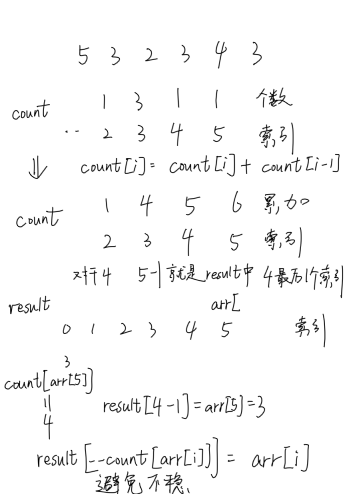 5 3 2 3 4 3
count 1 3 1 1 个数
·· 2 3 4 5 索引
⇓ count[i]= count[i]+ count[i-1]
count 1 4 5 6 累加
2 3 4 5 索引
对于4 5-1就是result中 4最后1个索引
result arr[
0 1 2 3 4 5 索引
3
count[arr[5]]
11
4 result[4-1]=arr[5]=3
result[--count[arr[i]]] = arr[i]
避免不稳.